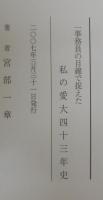 一事務員の目線で捉えた
私の愛大四十三年史
二〇〇七年三月三十一日発行
著者 宮部一章